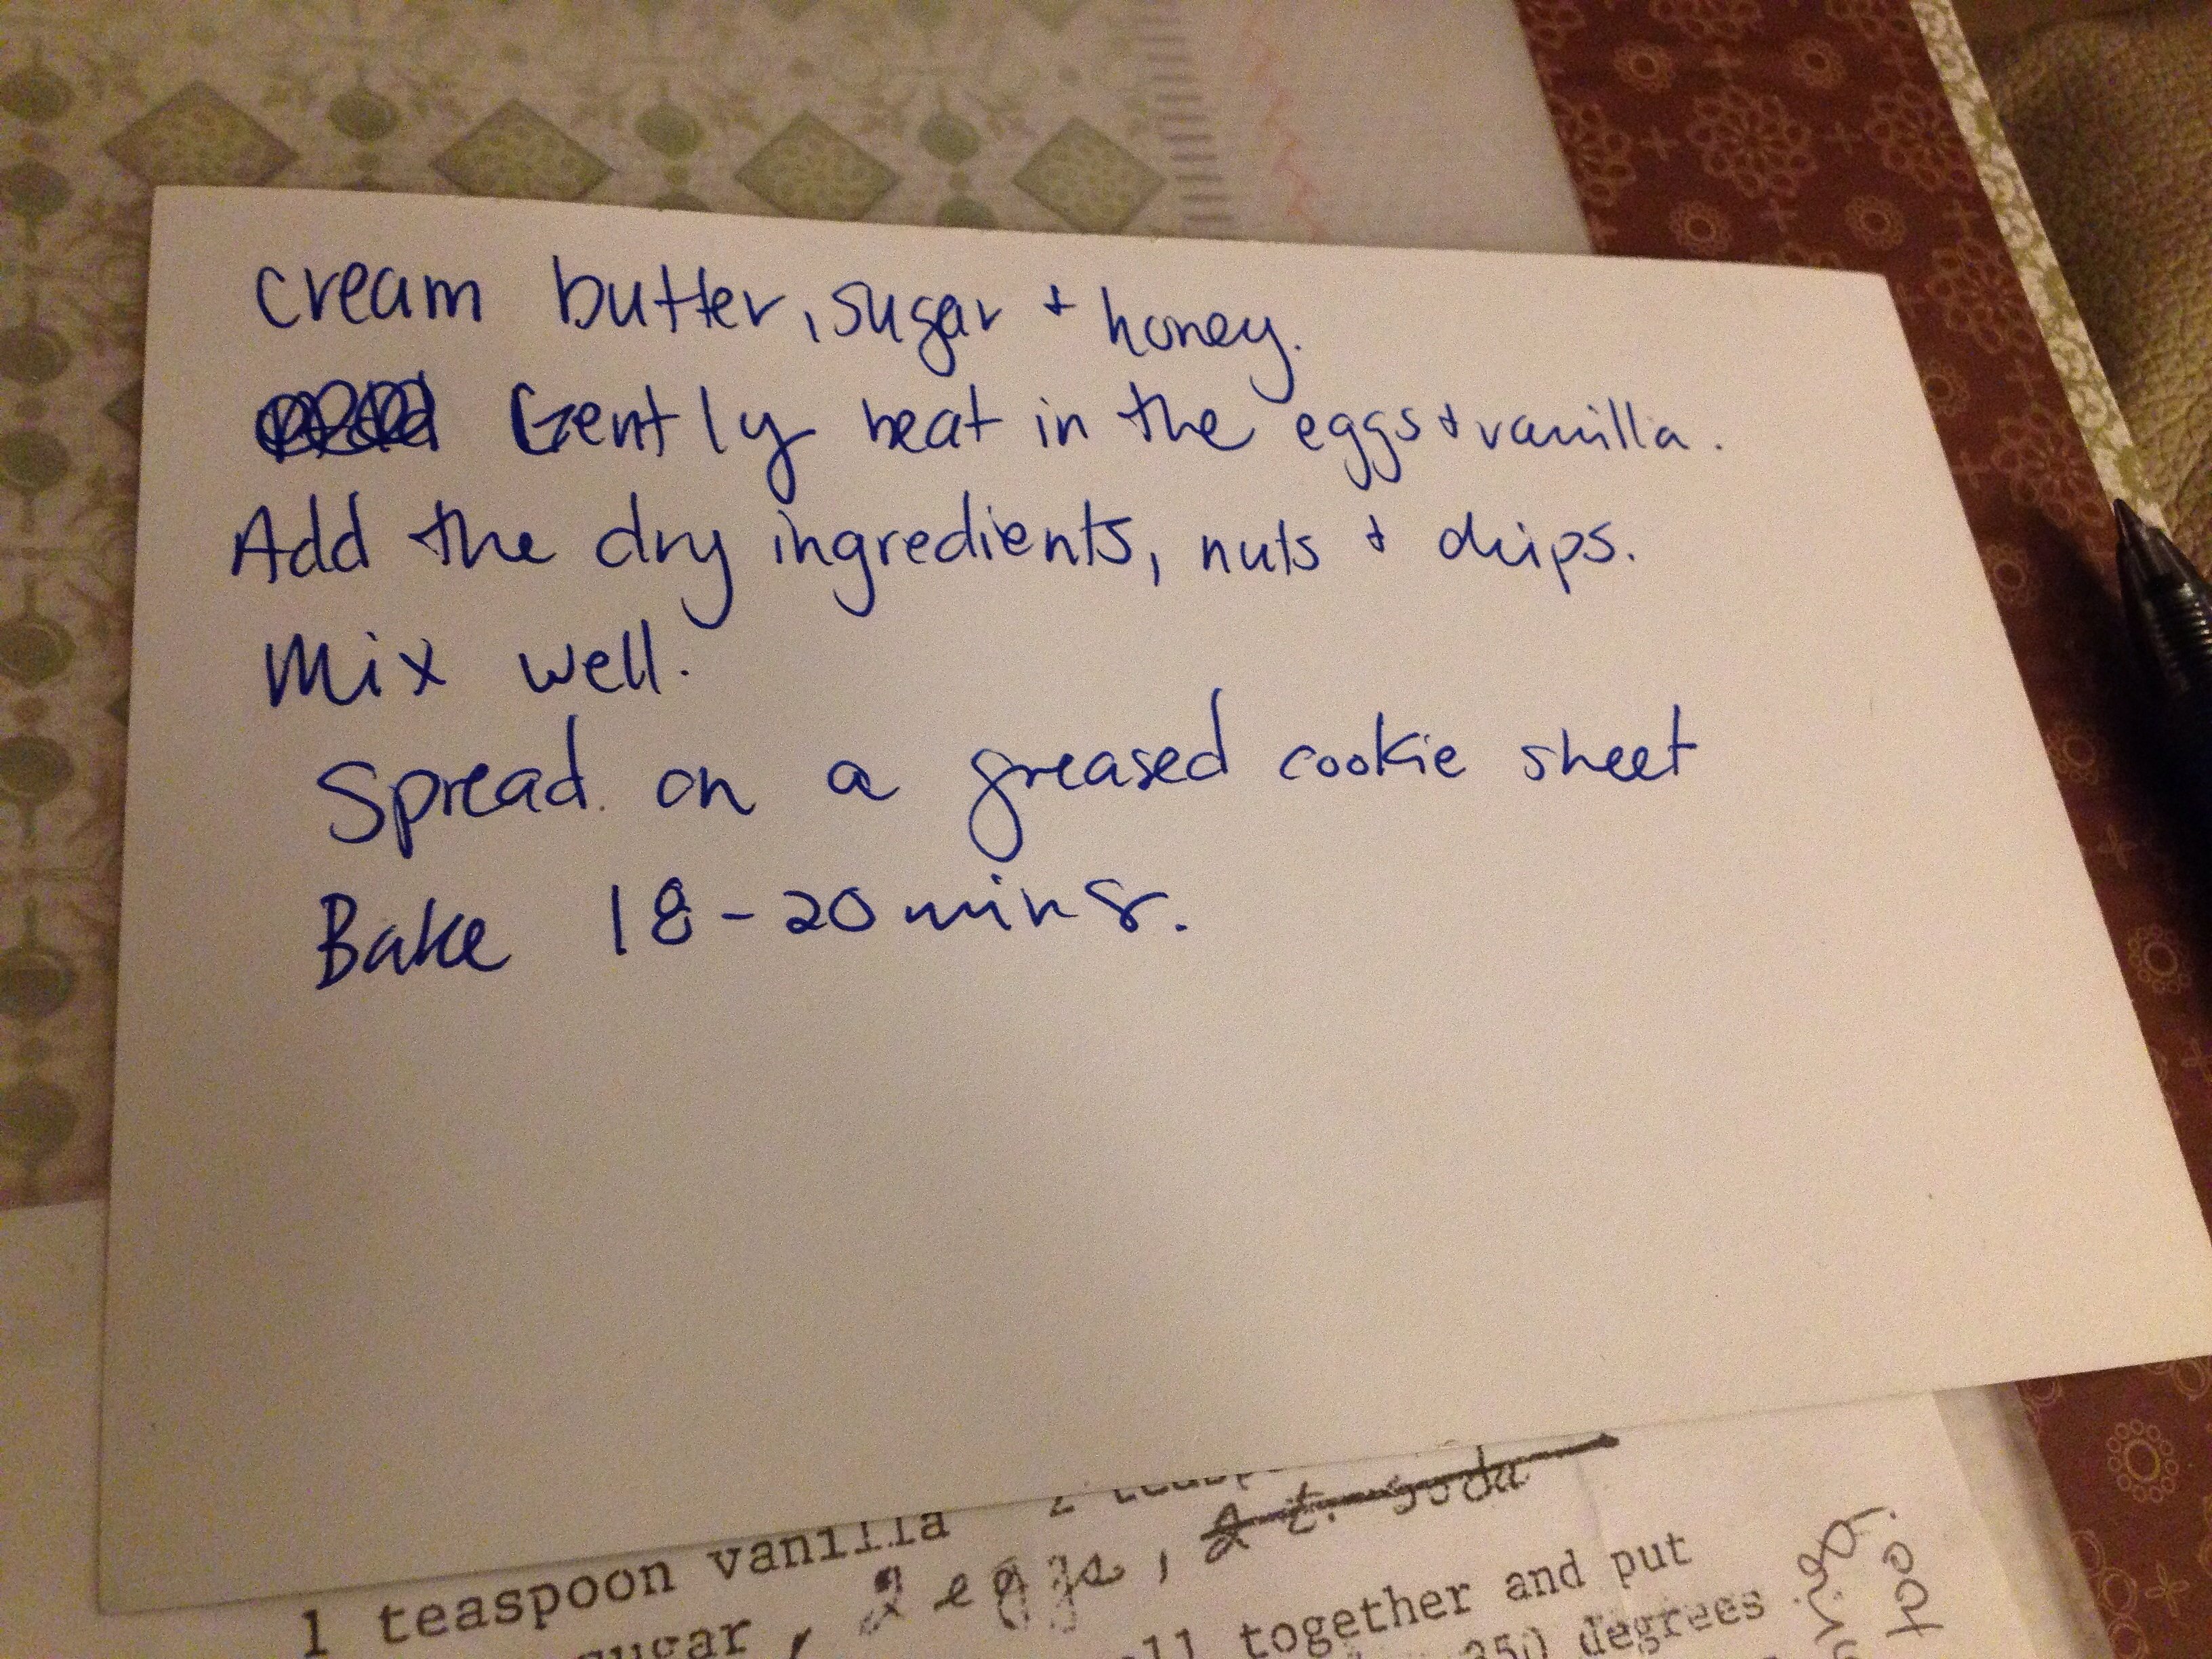 cream butter, sugar + honey.
Gently beat in the eggs + vanilla.
Add the dry ingredients, nuts + chips.
Mix well.
Spread on a greased cookie sheet
Bake 18-20 mins.
1 teaspoon vanilla 2
sugar, 2 eggs, 2 t. soda
together and put
350 degrees